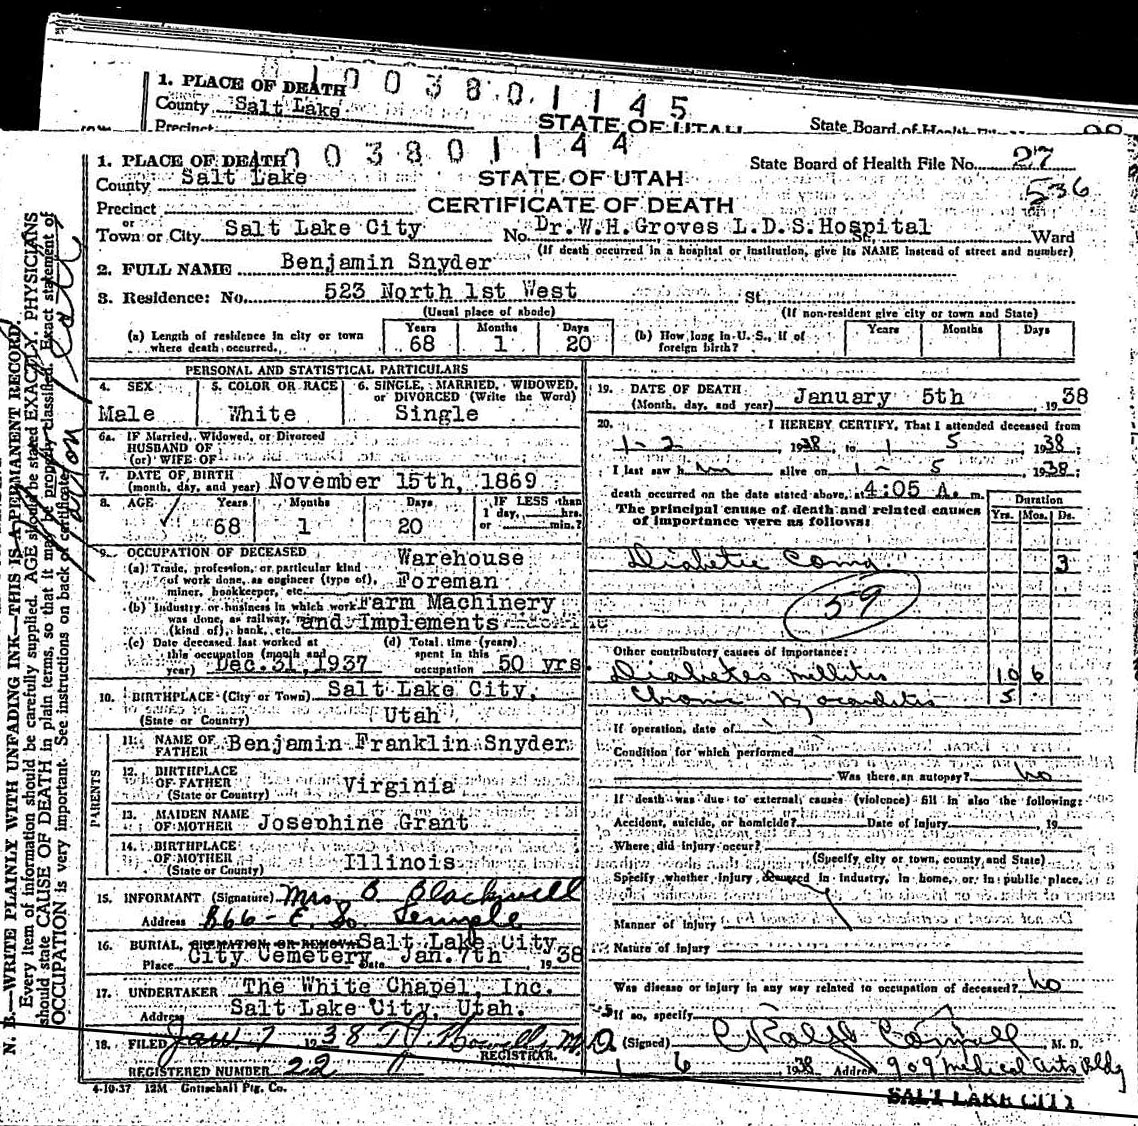 1. PLACE OF DEATH 1 0 0 3 8 0 1 1 4 5
County Salt Lake
STATE OF UTAH
State Board of Health
Precinct
1. PLACE OF DEATH 1 0 0 3 8 0 1 1 4 4
State Board of Health File No. 27
County Salt Lake
STATE OF UTAH
536
Precinct
CERTIFICATE OF DEATH
or
Town or City Salt Lake City No. Dr.W.H.Groves L.D.S.Hospital St. Ward
(If death occurred in a hospital or institution, give its NAME instead of street and number)
2. FULL NAME Benjamin Snyder
3. Residence: No. 523 North 1st West St.
(Usual place of abode) (If non-resident give city or town and State)
(a) Length of residence in city or town where death occurred. Years 68 Months 1 Days 20
(b) How long in U. S., if of foreign birth? Years Months Days
PERSONAL AND STATISTICAL PARTICULARS
4. SEX Male
5. COLOR OR RACE White
6. SINGLE, MARRIED, WIDOWED, OR DIVORCED (Write the Word) Single
6a. IF Married, Widowed, or Divorced
HUSBAND OF
(or) WIFE OF
7. DATE OF BIRTH
(month, day, and year) November 15th, 1869
8. AGE Years 68 Months 1 Days 20 IF LESS than 1 day, hrs. or min.?
9. OCCUPATION OF DECEASED
(a) Trade, profession, or particular kind of work done, as engineer (type of), miner, bookkeeper, etc. Warehouse Foreman
(b) Industry or business in which work was done, as railway, (kind of), bank, etc. Farm Machinery and Implements
(c) Date deceased last worked at this occupation (month and year) Dec. 31, 1937
(d) Total time (years) spent in this occupation 50 yrs.
10. BIRTHPLACE (City or Town) Salt Lake City,
(State or Country) Utah
PARENTS
11. NAME OF FATHER Benjamin Franklin Snyder
12. BIRTHPLACE OF FATHER (State or Country) Virginia
13. MAIDEN NAME OF MOTHER Josephine Grant
14. BIRTHPLACE OF MOTHER (State or Country) Illinois
15. INFORMANT (Signature) Mrs B Blackwell
Address 866 - E. So Temple
16. BURIAL, CREMATION OR REMOVAL Salt Lake City
Place City Cemetery Date Jan. 7th 1938
17. UNDERTAKER The White Chapel, Inc.
Address Salt Lake City, Utah.
18. FILED Jan 7 1938 M.D.
REGISTRAR.
REGISTERED NUMBER 22
4-10-37 12M Gottschall Ptg. Co.
19. DATE OF DEATH
(Month, day, and year) January 5th 1938
20. I HEREBY CERTIFY, That I attended deceased from
1-2 1938, to 1 5 1938;
I last saw him alive on 1 - 5 1938;
death occurred on the date stated above, at 4:05 A. m.
The principal cause of death and related causes of importance were as follows:
Duration
Yrs. Mos. Ds.
Diabetic Coma 3
59
Other contributory causes of importance:
Diabetes mellitis 10 6
Chronic Myocarditis 5
If operation, date of
Condition for which performed
Was there an autopsy? no
If death was due to external causes (violence) fill in also the following:
Accident, suicide, or homicide? Date of Injury 19
Where did injury occur?
(Specify city or town, county, and State)
Specify whether injury occurred in industry, in home, or in public place,
Manner of injury
Nature of injury
Was disease or injury in any way related to occupation of deceased? no
If so, specify
(Signed) M. D.
1 6 1938 Address 909 Medical Arts Bldg
SALT LAKE CITY
N. B.—WRITE PLAINLY WITH UNFADING INK—THIS IS A PERMANENT RECORD.
Every item of information should be carefully supplied. AGE should be stated EXACTLY. PHYSICIANS
should state CAUSE OF DEATH in plain terms, so that it may be properly classified. Exact statement of
OCCUPATION is very important. See instructions on back of certificate.